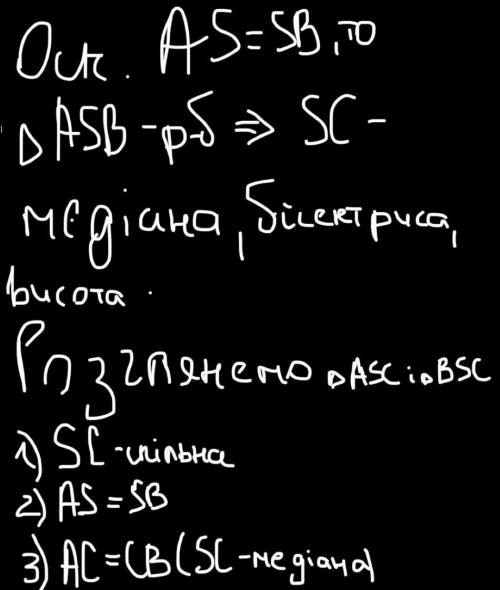 Оск. AS=SB, то
△ASB-р-б ⇒ SC-
медіана, бісектриса,
висота.
Розглянемо △ASC і △BSC
1) SC-спільна
2) AS=SB
3) AC=CB(SC-медіана)